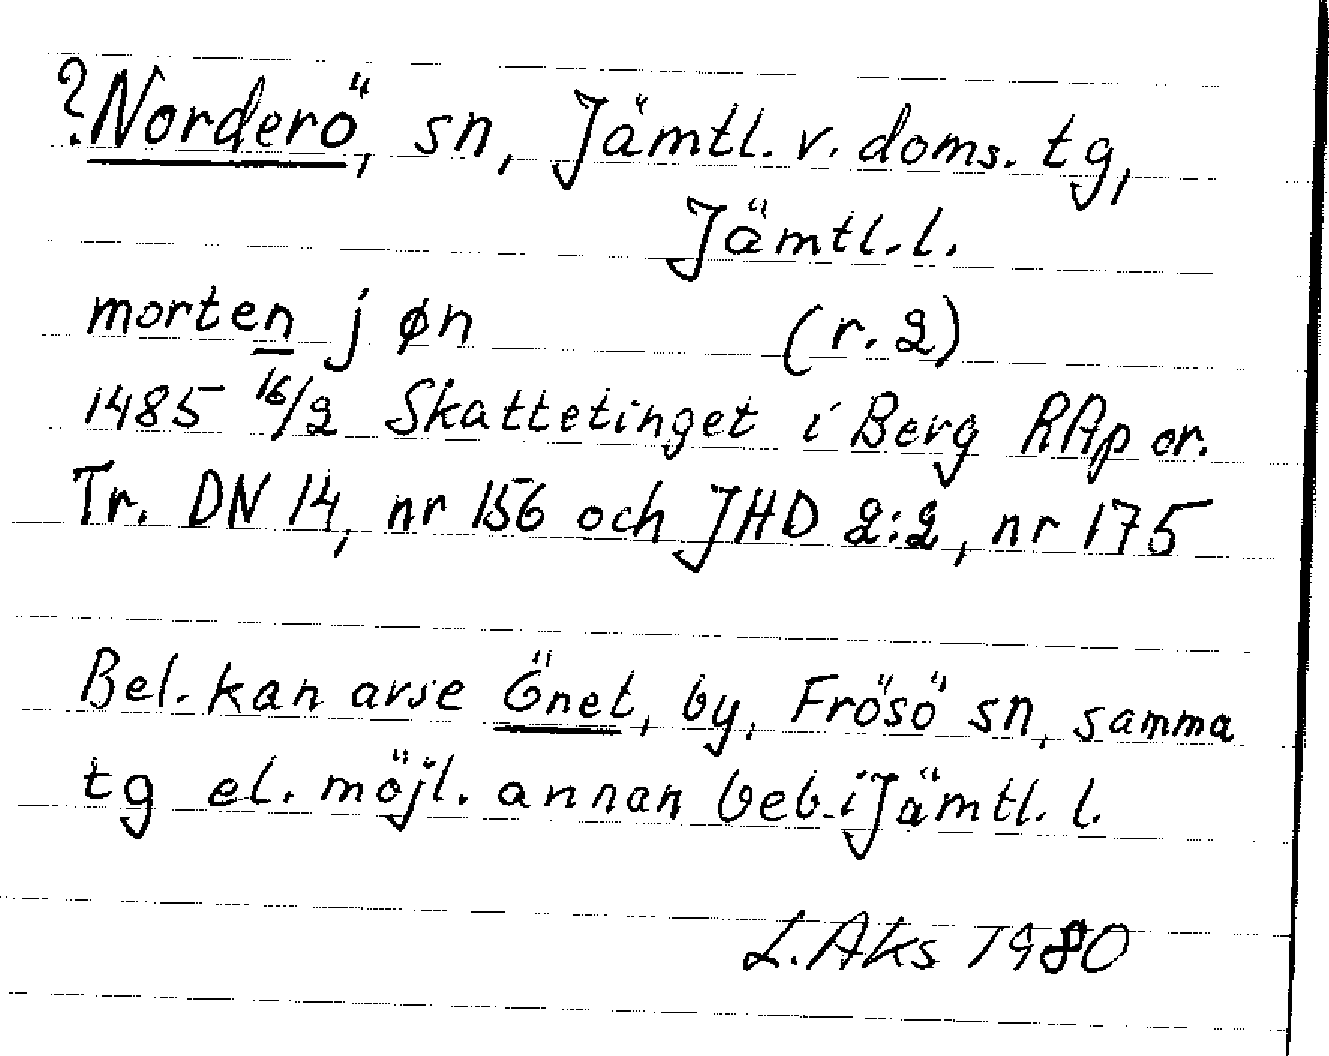 ?Norderö, sn, Jämtl. v. doms. tg,
Jämtl. l.
morten j øn (r. 2)
1485 16/2 Skattetinget i Berg RAp or.
Tr. DN 14, nr 156 och JHD 2:2, nr 175
Bel. kan avse Önet, by, Frösö sn, samma
tg el. möjl. annan beb. i Jämtl. l.
L. Aks 1980